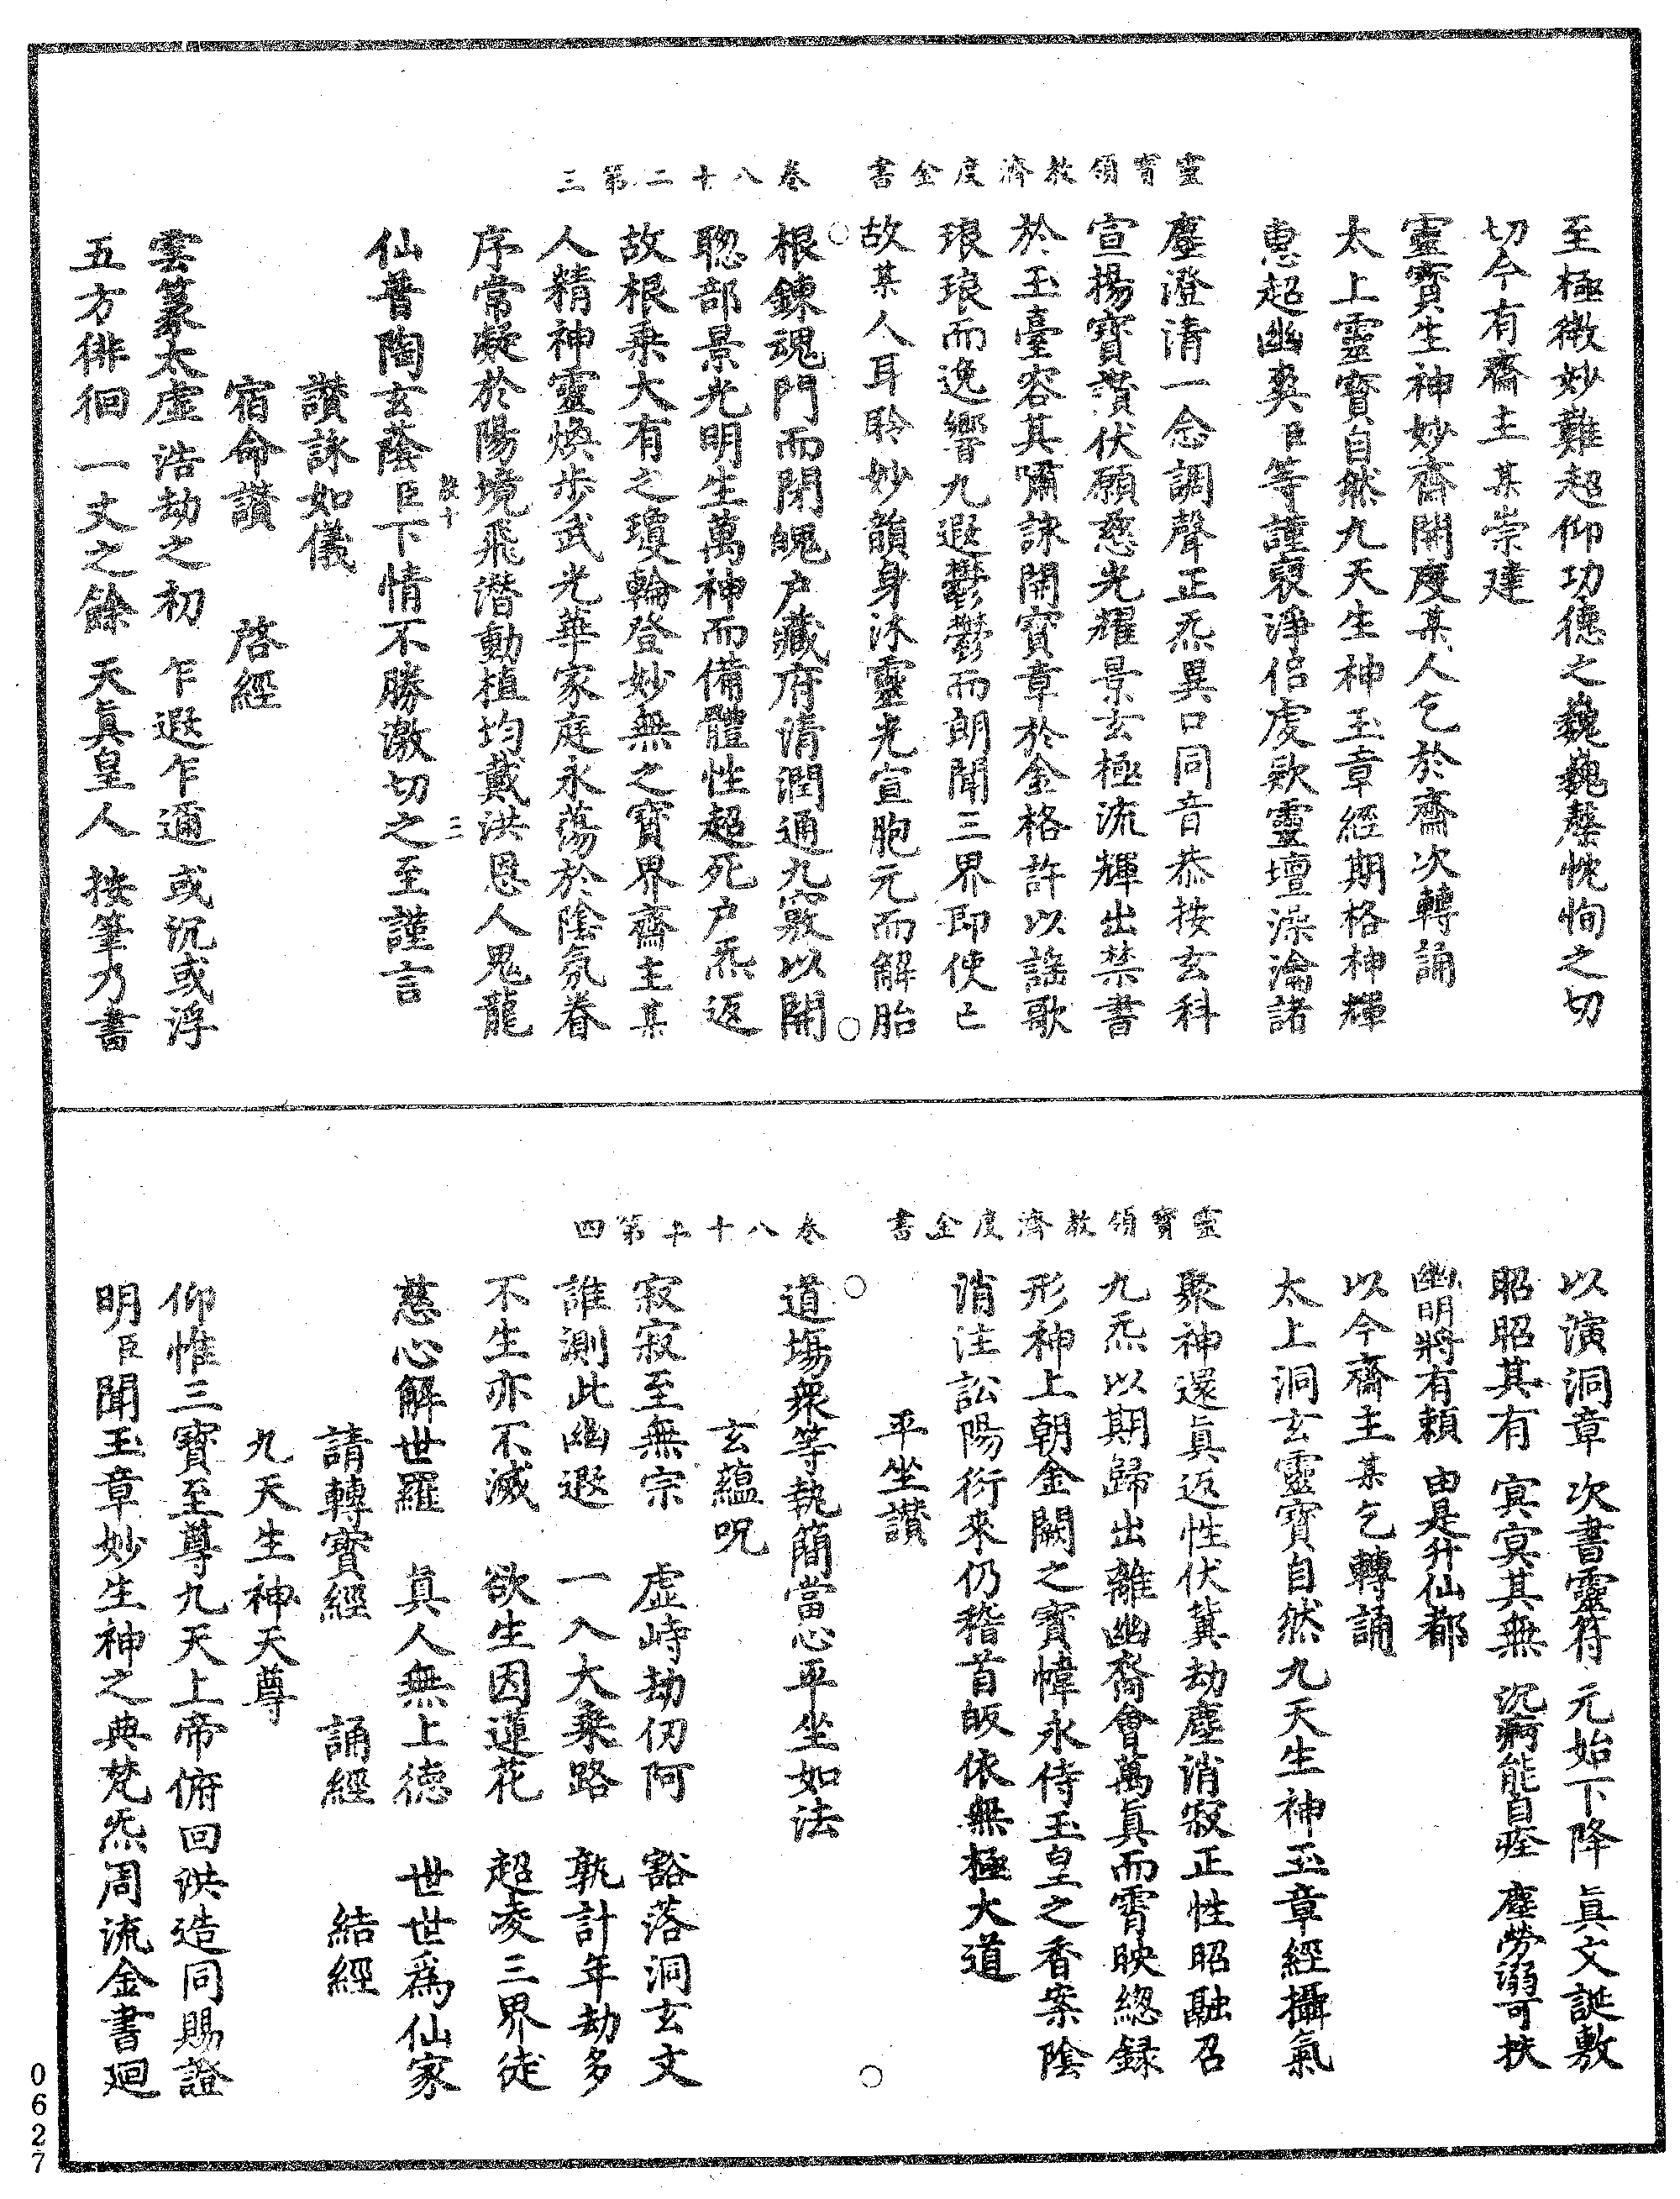 靈寶領教濟度金書　卷八十二第三
至極微妙難超仰功德之巍巍罄忱恂之切
切今有齋主某崇建
靈寶生神妙齋開度某人乞於齋次轉誦
太上靈寶自然九天生神玉章經期格神輝
惠超幽爽臣等謹裒淨侶虔歟靈壇澡瀹諸
塵澄清一念調聲正炁異口同音恭按玄科
宣揚寶讚伏願慈光耀景玄極流輝出禁書
於玉臺容其嘯詠開寶章於金格許以謠歌
琅琅而逸響九遐鬱鬱而朗聞三界即使亡
故某人耳聆妙韻身沐靈光宣胞元而解胎
根鍊魂門而閉魄户藏府清潤通九竅以開
聰部景光明生萬神而備體性超死户炁返
故根乗大有之瓊輪登妙無之寶界齋主某
人精神靈煥步武光華家庭永蕩於陰氛眷
序常凝於陽境飛潛動植均戴洪恩人鬼龍
三
仙普陶玄蔭臣下情不勝激切之至謹言
讚詠如儀
宿命讚　啓經
雲篆太虛　浩劫之初　乍遐乍邇　或沉或浮
五方徘徊　一丈之餘　天眞皇人　按筆乃書
靈寶領教濟度金書　卷八十二第四
以演洞章　次書靈符　元始下降　眞文誕敷
昭昭其有　冥冥其無　沉痾能自痊　塵勞溺可扶
幽明將有賴　由是升仙都
以今齋主某乞轉誦
太上洞玄靈寶自然九天生神玉章經攝氣
聚神還眞返性伏冀劫塵消寂正性昭融召
九炁以期歸出離幽裔會萬眞而霄映緫録
形神上朝金闕之寶幃永侍玉皇之香案陰
消注訟陽衍來仍稽首皈依無極大道
平坐讚
道塲衆等執簡當心平坐如法
玄蘊呪
寂寂至無宗　虛峙劫仞阿　豁落洞玄文
誰測此幽遐　一入大乗路　孰計年劫多
不生亦不滅　欲生因蓮花　超凌三界徒
慈心解世羅　眞人無上德　世世爲仙家
請轉寶經　誦經　結經
九天生神天尊
仰惟三寶至尊九天上帝俯回洪造同賜證
明臣聞玉章妙生神之典梵炁周流金書廻
0627